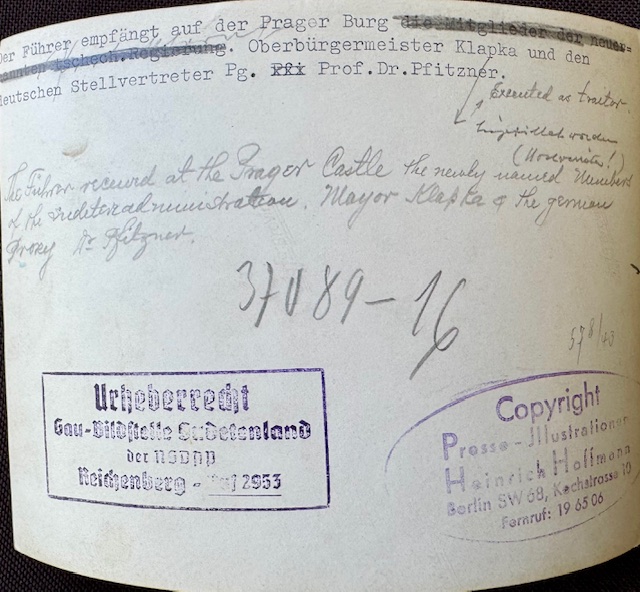 Der Führer empfängt auf der Prager Burg die Mitglieder der neuer=
nannten tschech.Regierung. Oberbürgermeister Klapka und den
deutschen Stellvertreter Pg. Prof.Dr.Pfitzner.
Executed as traitor.
hingerichtet worden
The Führer received at the Prager Castle the newly named Members
of the sudeten administration. Mayor Klapka & the german
Proxy Dr Pfitzner.
37V89-16
378/40
Urheberrecht
Gau-Bildstelle Sudetenland
der NSDAP
Reichenberg - Ruf 2953
Copyright
Presse-Illustrationen
Heinrich Hoffmann
Berlin SW 68, Kochstrasse 10
Fernruf: 19 65 06